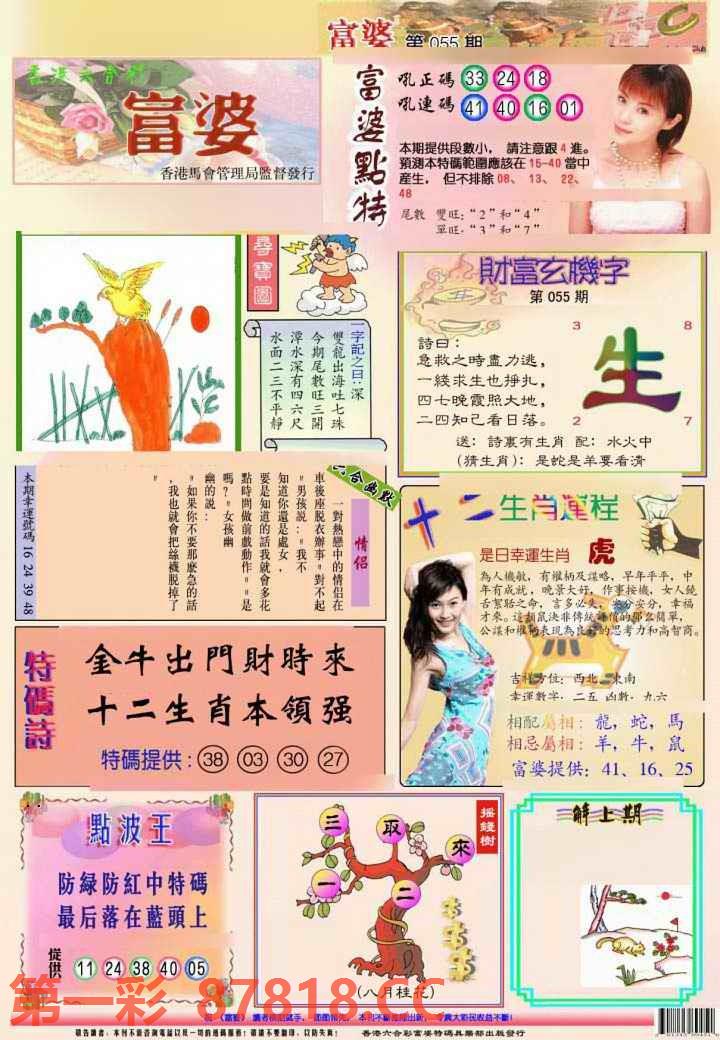 富婆 第 055 期
富婆六合彩
富婆
香港馬會管理局監督發行
富婆點特
吼正碼 33 24 18
吼連碼 41 40 16 01
本期提供段數小， 請注意跟 4 進。
預測本特碼範圍應該在 15-40 當中
産生， 但不排除 08、 13、 22、
48
尾數 雙旺：“2”和“4”
單旺：“3”和“7”
尋寶圖
一字記之曰：深
雙龍出海吐七珠
今期尾數旺三開
潭水深有四六尺
水面二三不平靜
財富玄機字
第 055 期
詩曰：
急救之時盡力逃，
一綫求生也掙扎，
四七晚霞照大地，
二四知己看日落。
3 8
生
2 7
送： 詩裏有生肖 配： 水火中
(猜生肖)： 是蛇是羊要看濟
六合幽默
情侶
一對熱戀中的情侶在
車後座脱衣辦事〃對不起
〃男孩説：〃我不
知道你還是處女，
要是知道的話我就會多花
點時間做前戲動作〃〃是
嗎？〃女孩幽
幽的説：
〃如果你不要那麽急的話
，我也就會把絲襪脱掉了
〃
本期幸運號碼 16 24 39 48
十二生肖運程
是日幸運生肖 虎
為人機敏， 有權柄及謀略， 早年平平， 中
年有成就， 晚景大好， 作事按機， 女人饒
舌絮聒之命， 言多必失， 安分安分， 幸福
公謀和權柄表現為良好的思考力和高智商。
吉祥方位： 西北、東南
幸運數字： 二五 凶數： 九六
相配屬相： 龍， 蛇， 馬
相忌屬相： 羊， 牛， 鼠
富婆提供： 41、16、25
特碼詩
金牛出門財時來
十二生肖本領强
特碼提供： 38 03 30 27
點波王
防緑防紅中特碼
最后落在藍頭上
提供 11 24 38 40 05
摇錢樹
三 取 來
一 二
(八月桂花)
解上期
第一彩 87818.CC
香港六合彩富婆特碼俱樂部出版發行